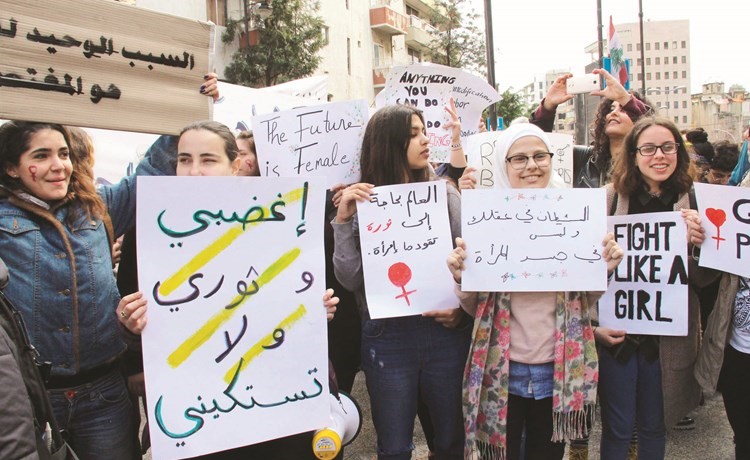 السبب الوحيد
هو
The Future
is Female
ANYTHING
YOU
CAN DO
labor
إغضبي
و ثوري
و لا
تستكيني
العالم بحاجة
إلى ثورة
تقودها إمرأة.
الشيطان في عقلك
وليس
في جسد المرأة
FIGHT
LIKE A
GIRL